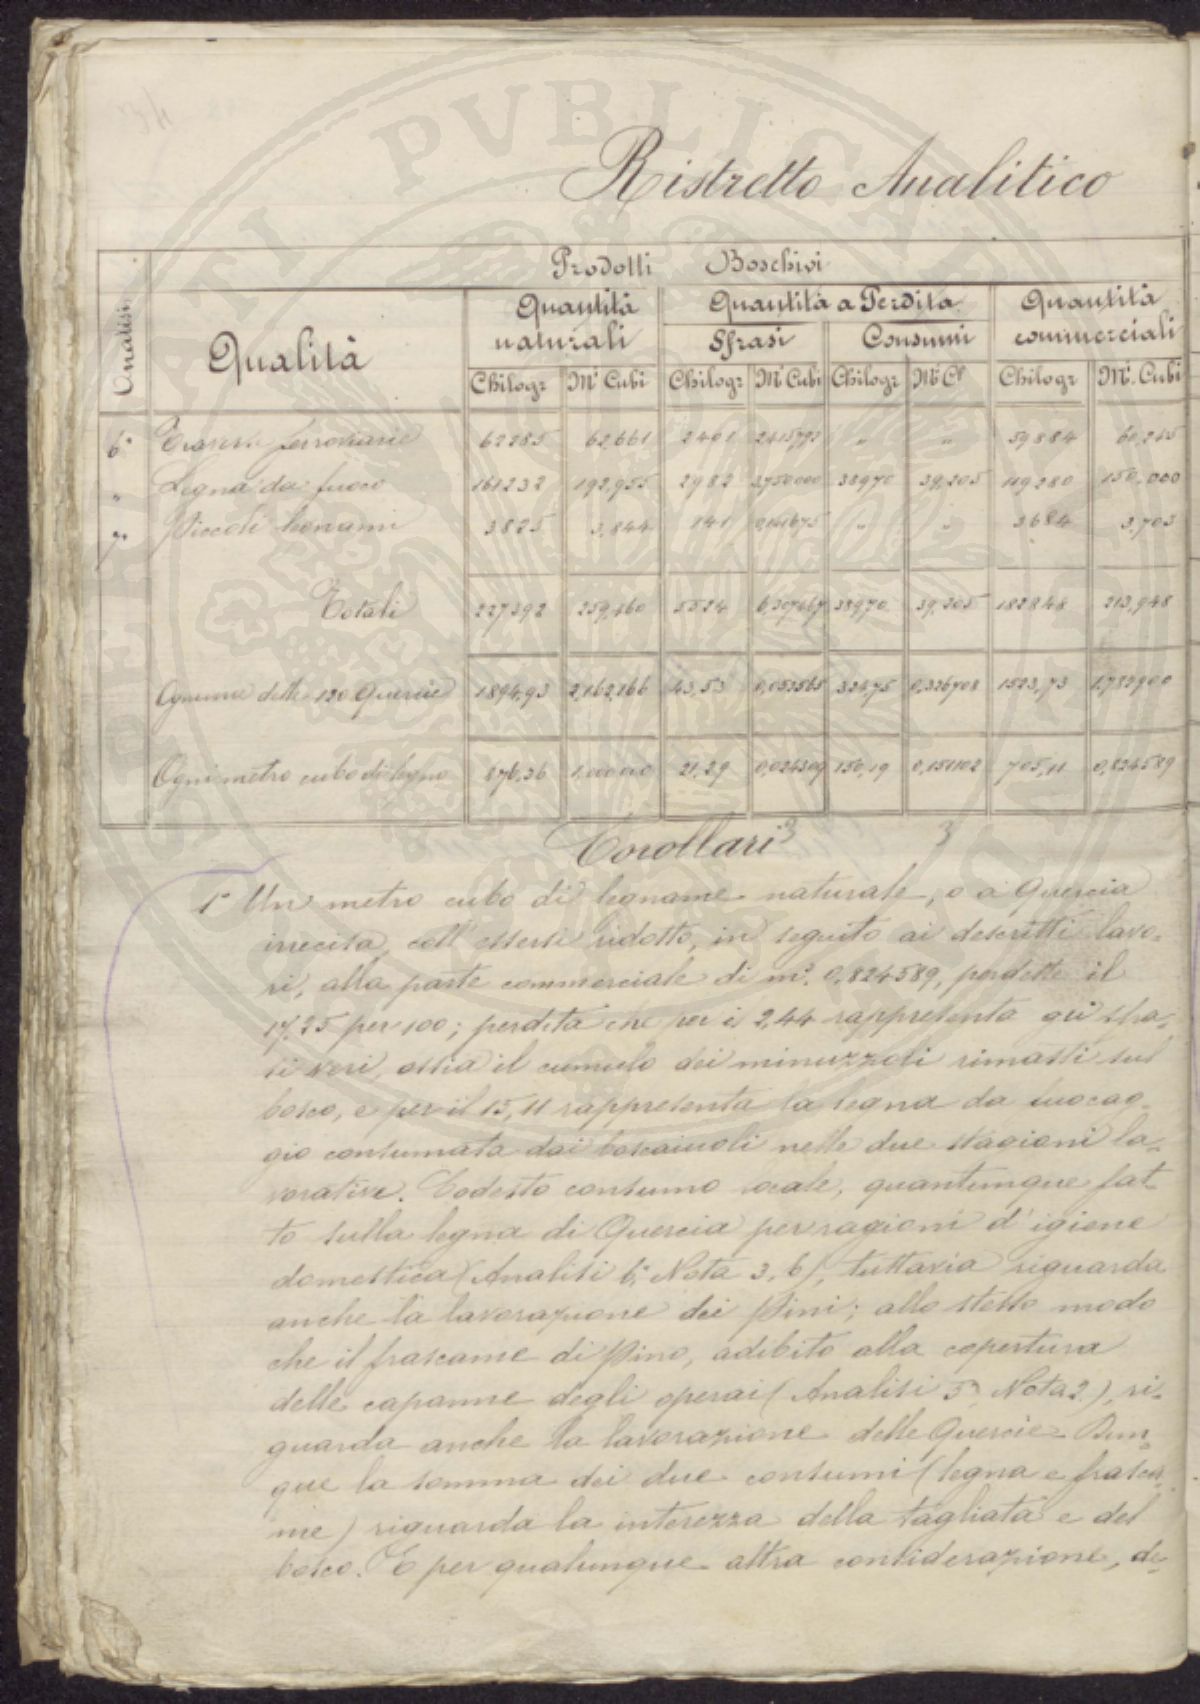 Ristretto Analitico
Prodotti Boschivi
Analisi Qualità Quantità naturali Quantità a Perdita Quantità commerciali
Sfrasi Consumi
Chilogr Mⁱ Cubi Chilogr Mⁱ Cubi Chilogr Mⁱ Cⁱ Chilogr Mⁱ. Cubi
6ª Traverse ferroviarie 62285 62,661 2401 2,415792 „ „ 59884 60,245
„ Legna da fuoco 161232 192,955 2982 3,750000 38970 39,205 119280 150,000
7ª Piccoli legnami 3825 3,844 141 0,141675 „ „ 3684 3,703
Totali 227392 259,460 5524 6,307467 38970 39,205 182848 213,948
Ognuna delle 120 Quercie 1894,93 2,162,166 43,53 0,052565 324,75 0,326708 1523,73 1,782900
Ogni metro cubo di legno 876,36 1,000000 21,29 0,024309 150,19 0,151102 705,11 0,824589
Corollari
1º Un metro cubo di legname naturale, o a Quercia
irrecisa, coll'essersi ridotto, in seguito ai descritti lavo-
ri, alla parte commerciale di m³. 0,824589, perdette il
17,25 per 100; perdita che per il 2,44 rappresenta gli sfra-
si veri, ossia il cumulo dei minuzzoli rimasti sul
bosco, e per il 15,11 rappresenta la legna da fuocag-
gio consumata dai boscaiuoli nelle due stagioni la-
vorative. Codesto consumo locale, quantunque fat-
to sulla legna di Quercia per ragioni d'igiene
domestica (Analisi 6ª Nota 3, 6), tuttavia riguarda
anche la lavorazione dei Pini; allo stesso modo
che il frascame di Pino, adibito alla copertura
delle capanne degli operai (Analisi 5ª Nota 2), ri-
guarda anche la lavorazione delle Quercie. Dun-
que la somma dei due consumi (legna e frasca-
me) riguarda la interezza della tagliata e del
bosco. E per qualunque altra considerazione, de-